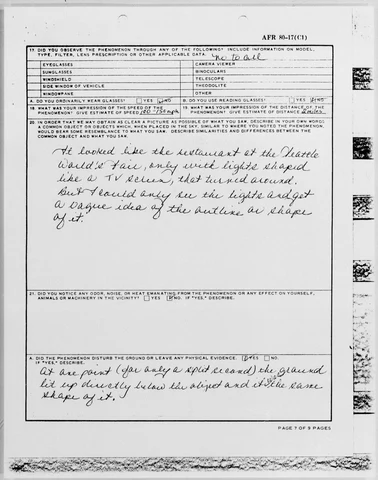 AFR 80-17(C1)
17. DID YOU OBSERVE THE PHENOMENON THROUGH ANY OF THE FOLLOWING? INCLUDE INFORMATION ON MODEL, TYPE, FILTER, LENS PRESCRIPTION OR OTHER APPLICABLE DATA.
no to all
EYEGLASSES
CAMERA VIEWER
SUNGLASSES
BINOCULARS
WINDSHIELD
TELESCOPE
SIDE WINDOW OF VEHICLE
THEODOLITE
WINDOWPANE
OTHER
A. DO YOU ORDINARILY WEAR GLASSES? YES NO B. DO YOU USE READING GLASSES? YES NO
18. WHAT WAS YOUR IMPRESSION OF THE SPEED OF THE PHENOMENON? GIVE ESTIMATE OF SPEED
19. WHAT WAS YOUR IMPRESSION OF THE DISTANCE OF THE PHENOMENON? GIVE ESTIMATE OF DISTANCE
20. IN ORDER THAT WE MAY OBTAIN AS CLEAR A PICTURE AS POSSIBLE OF WHAT YOU SAW, DESCRIBE IN YOUR OWN WORDS
A COMMON OBJECT OR OBJECTS WHICH, WHEN PLACED IN THE SKY, SIMILAR TO WHERE YOU NOTED THE PHENOMENON,
WOULD BEAR SOME RESEMBLANCE TO WHAT YOU SAW. DESCRIBE SIMILARITIES AND DIFFERENCES BETWEEN THE
COMMON OBJECT AND WHAT YOU SAW.
It looked like the restaurant at the Seattle
World's Fair, only with lights shaped
like a TV screen that turned around.
But I could only see the lights and get
a vague idea of the outline or shape
of it.
21. DID YOU NOTICE ANY ODOR, NOISE, OR HEAT EMANATING FROM THE PHENOMENON OR ANY EFFECT ON YOURSELF,
ANIMALS OR MACHINERY IN THE VICINITY? YES NO. IF "YES," DESCRIBE.
A. DID THE PHENOMENON DISTURB THE GROUND OR LEAVE ANY PHYSICAL EVIDENCE. YES NO.
IF "YES," DESCRIBE.
At one point (for only a split second) the ground
lit up directly below the object and it was the same
shape of it.
PAGE 7 OF 9 PAGES